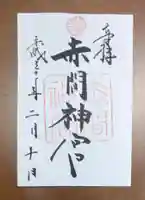 奉拝
赤間神宮
平成三十年二月十日